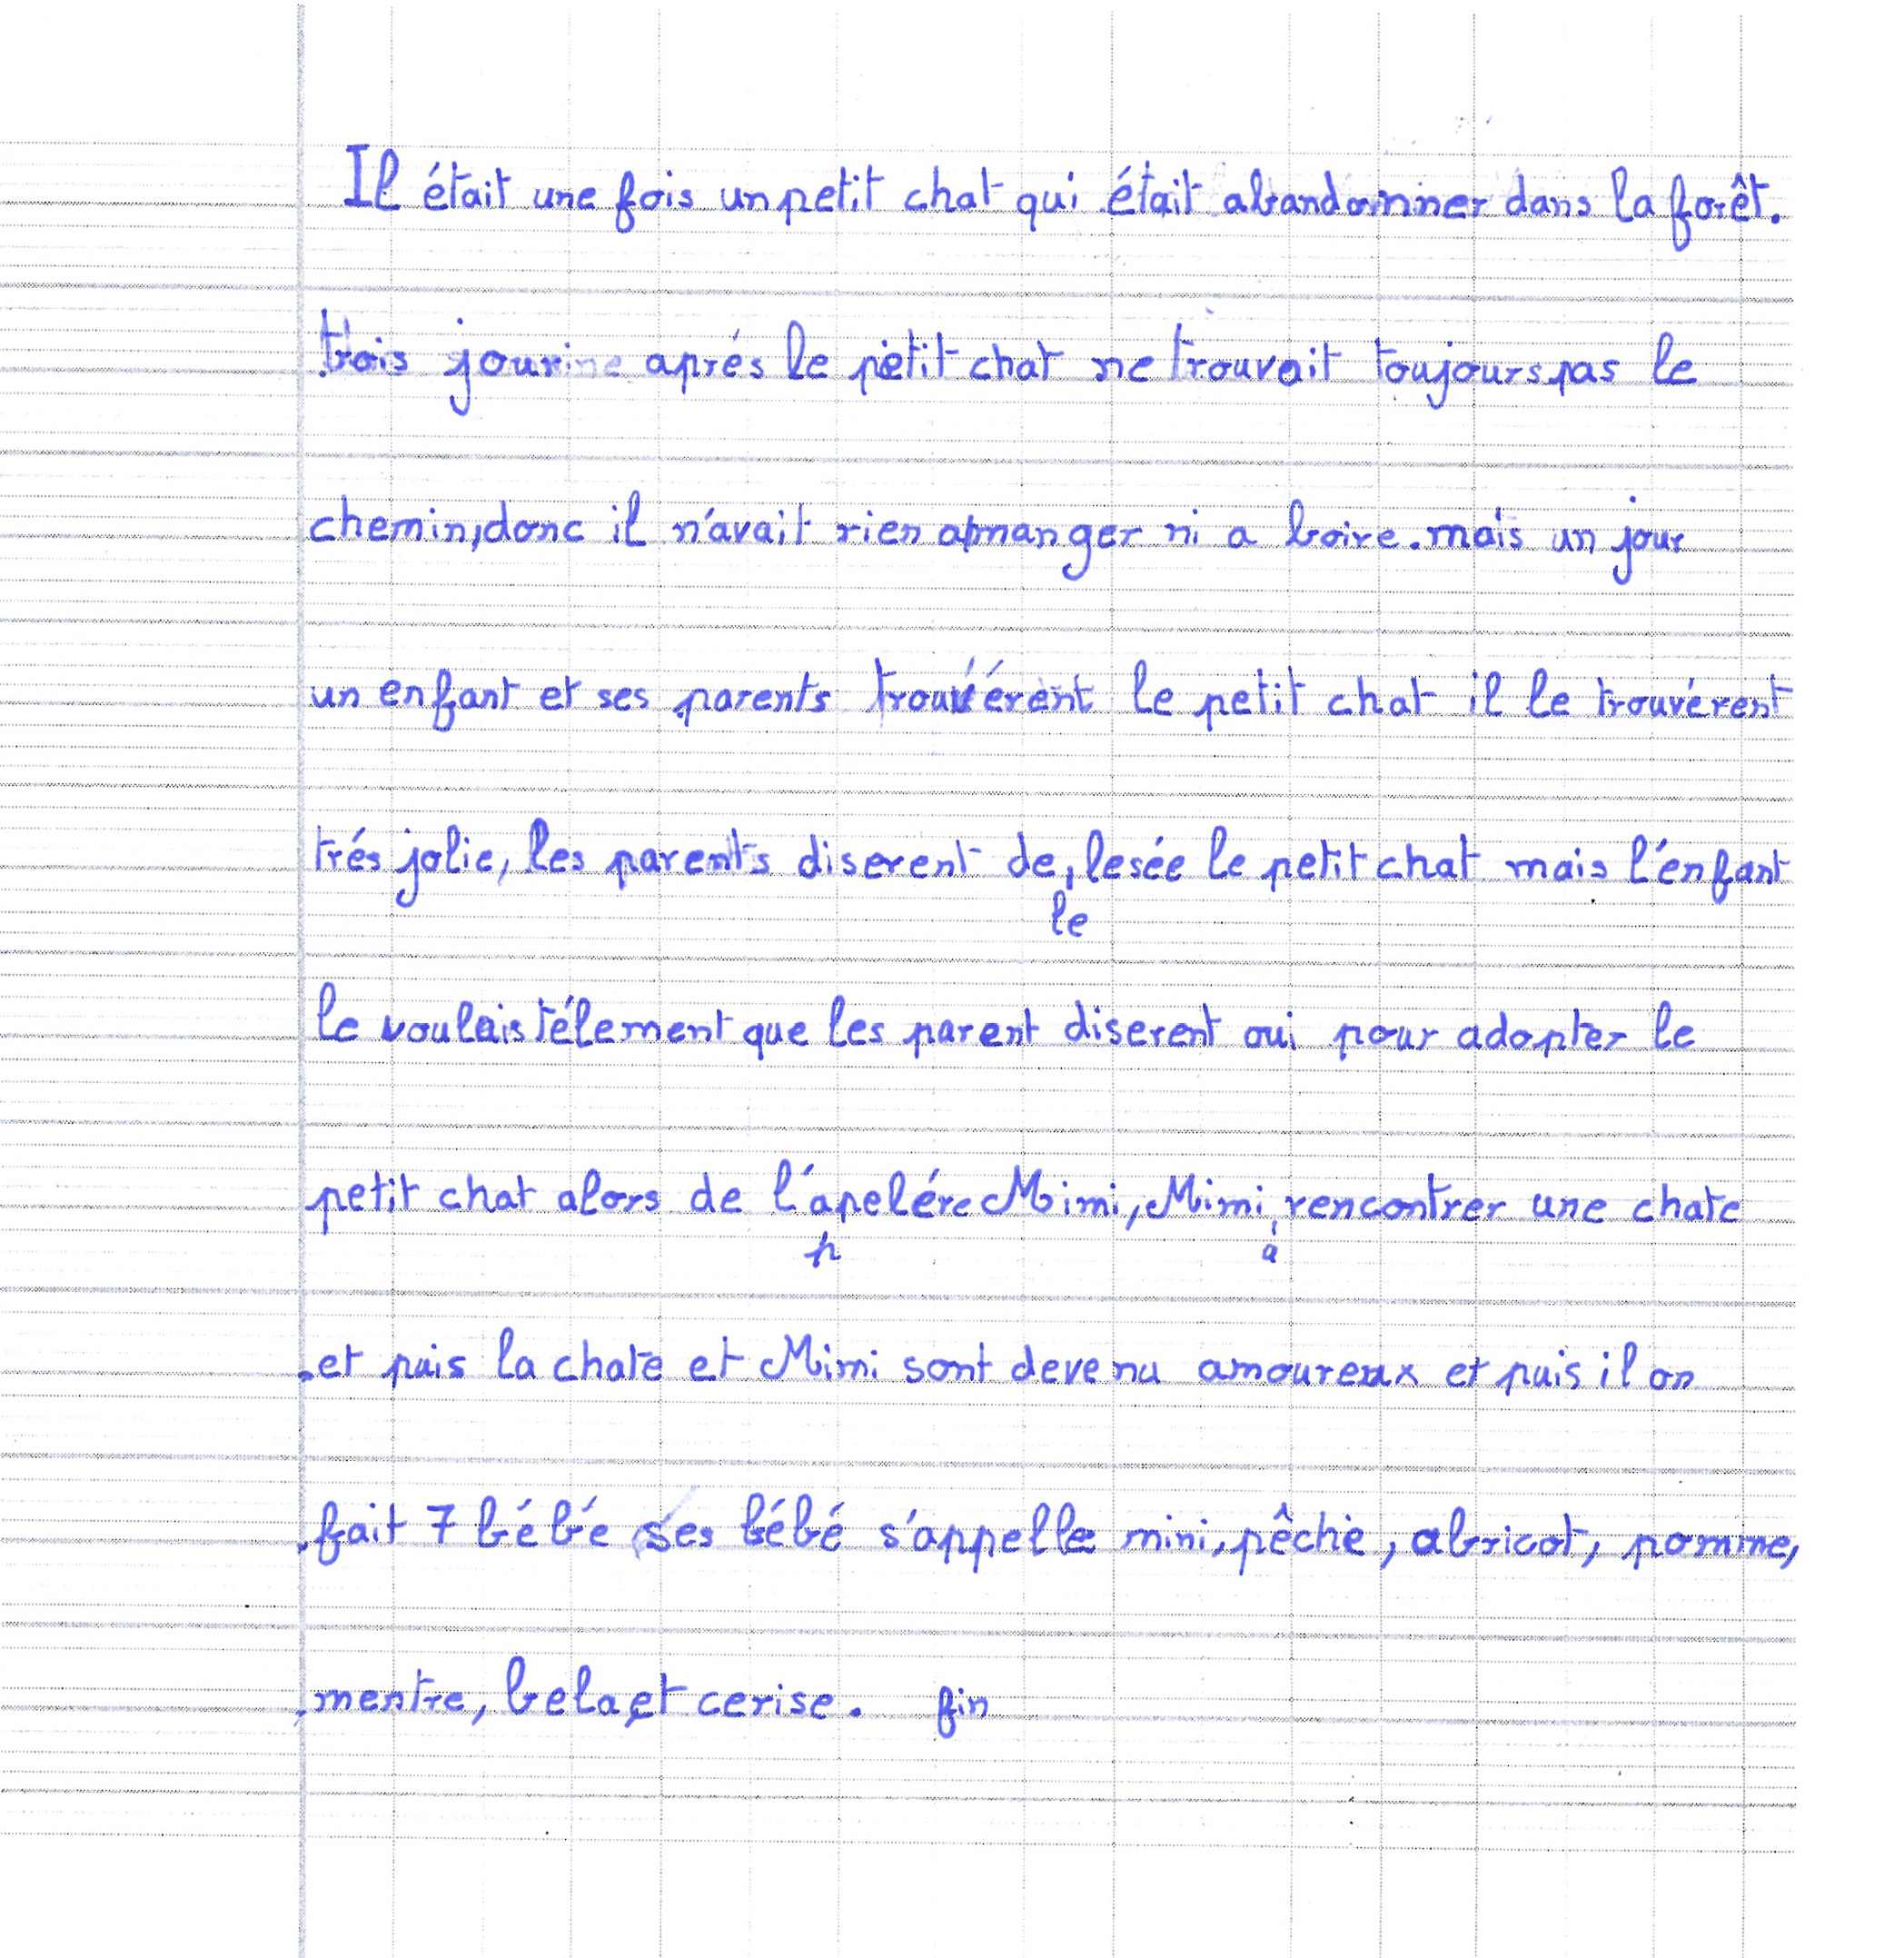 Il était une fois un petit chat qui était abandonner dans la forêt.
trois jour aprés le petit chat ne trouvait toujours pas le
chemin, donc il n'avait rien a manger ni a boire. mais un jour
un enfant et ses parents trouvérent le petit chat il le trouvérent
trés jolie, les parents diserent de, lesée le petit chat mais l'enfant
le
le voulais télement que les parent diserent oui pour adopter le
petit chat alors de l'apelére Mimi, Mimi rencontrer une chate
p a
et puis la chate et Mimi sont devenu amoureux et puis il on
fait 7 bébé ses bébé s'appelle mini, pêche, abricot, pomme,
mentre, bela, et cerise. fin